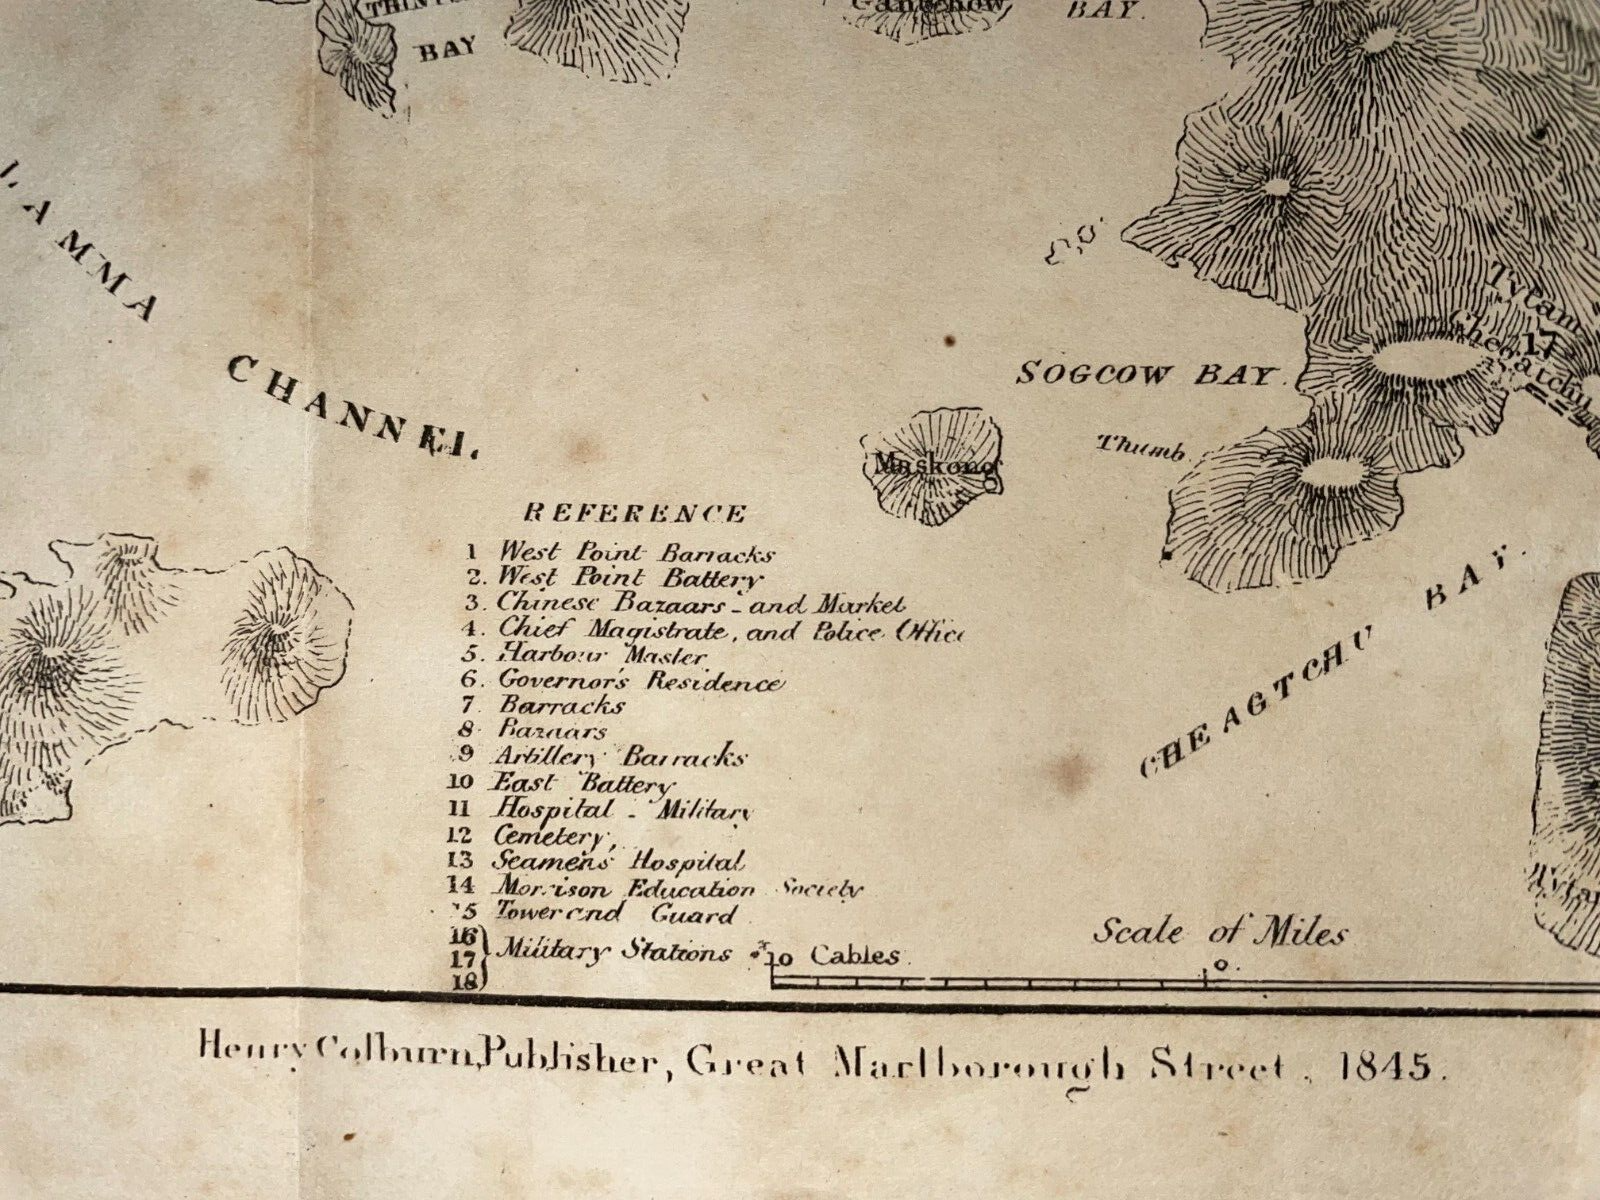 BAY
BAY.
LAMMA CHANNEL.
SOGCOW BAY.
Maskong
Thumb
Tytam
17
CHEAGTCHU BAY.
REFERENCE
1 West Point Barracks
2. West Point Battery
3. Chinese Bazaars - and Market
4. Chief Magistrate, and Police Office
5. Harbour Master
6. Governors Residence
7. Barracks
8. Bazaars
9 Artillery Barracks
10 East Battery
11 Hospital - Military
12 Cemetery,
13 Seamens Hospital
14 Morrison Education Society
15 Tower and Guard
16
17 Military Stations
18
10 Cables.
0.
Scale of Miles
Henry Colburn, Publisher, Great Marlborough Street, 1845.